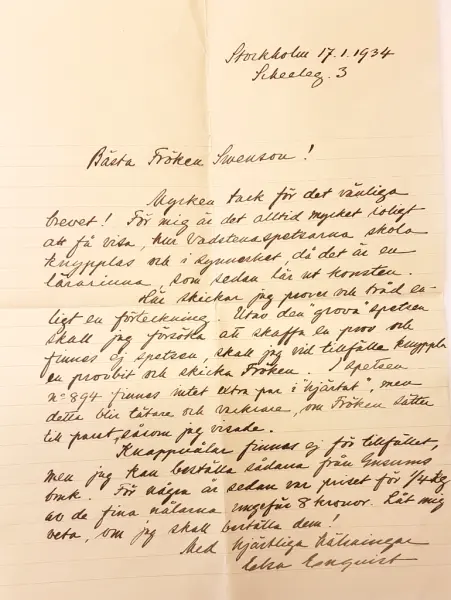 Stockholm 17.1.1934
Scheeleg. 3
Bästa Fröken Swenson!
Mycken tack för det vänliga
brevet! För mig är det alltid mycket roligt
att få visa, hur Vadstenaspetsarna skola
knypplas och i synnerhet, då det är en
lärarinna, som sedan lär ut konsten.
Här skickar jag prover och tråd en-
ligt en förteckning. Utav den "grova" spetsen
skall jag försöka att skaffa en prov och
finnes ej spetsen, skall jag vid tillfälle knyppla
en provbit och skicka Fröken. I spetsen
no 894 finnes intet extra par i "hjärtat", men
detta blir tätare och vackrare, om Fröken sätter
till paret, såsom jag visade.
Knappnålar finnes ej för tillfället,
men jag kan beställa sådana från Gusums
bruk. För några år sedan var priset för 1/4 kg
av de fina nålarna ungefär 8 kronor. Låt mig
veta, om jag skall beställa dem!
Med hjärtliga hälsningar